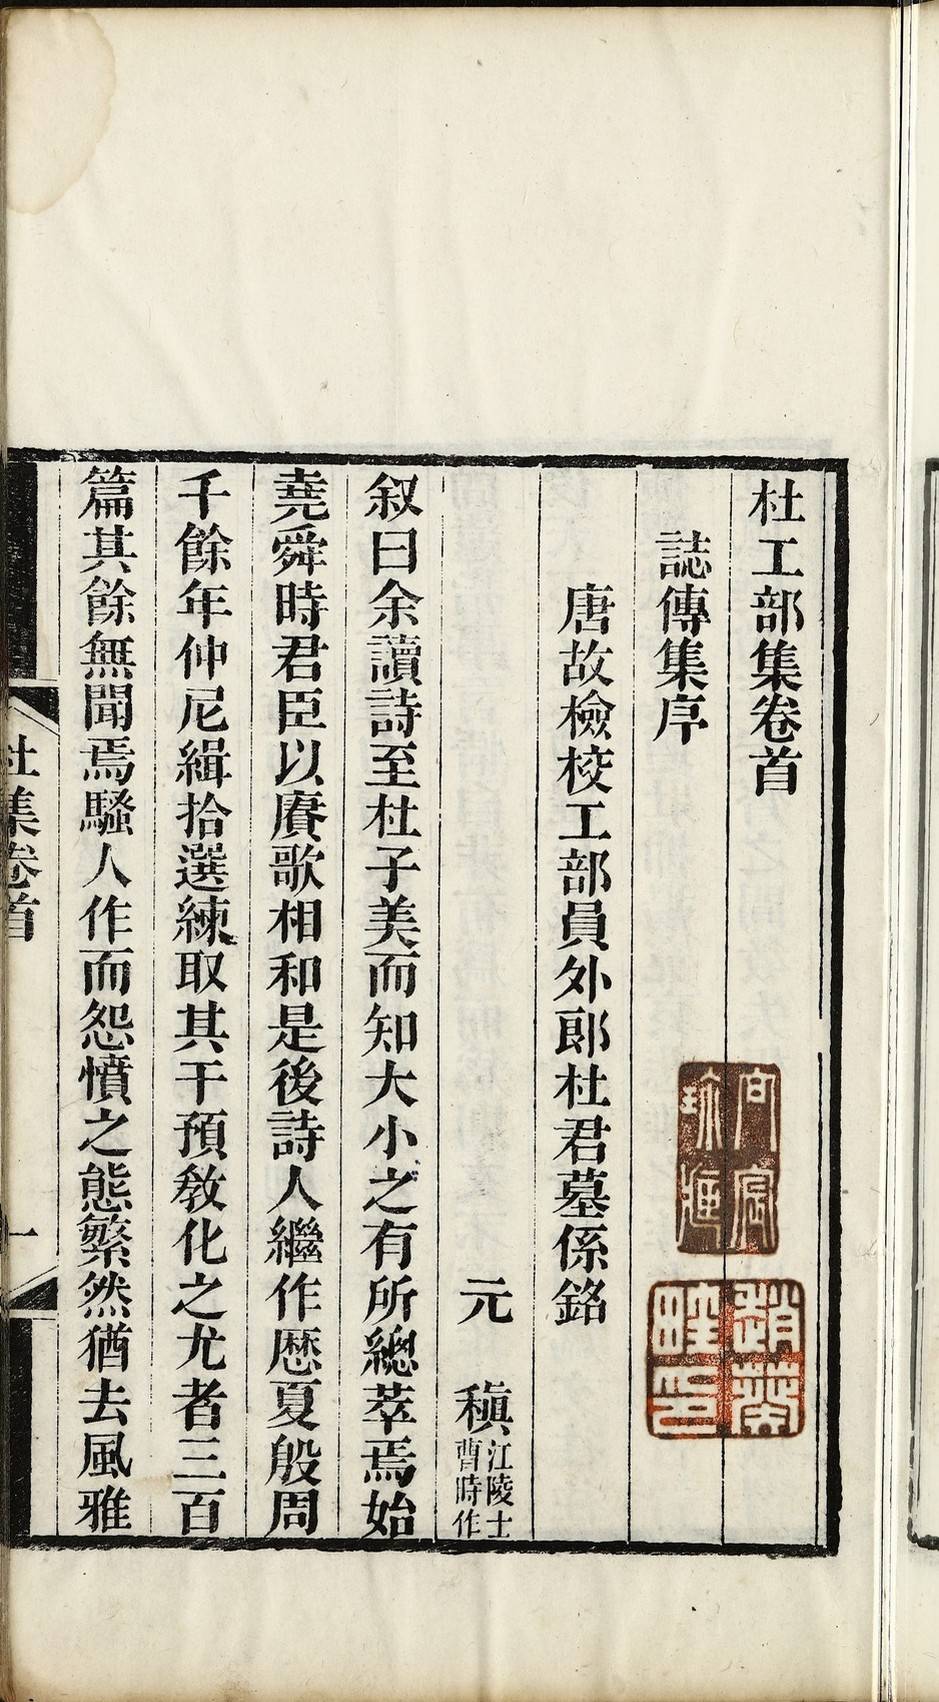 杜工部集卷首
誌傳集序
唐故檢校工部員外郎杜君墓係銘
元稹江陵士
曹時作
叙曰余讀詩至杜子美而知大小之有所總萃焉始
堯舜時君臣以賡歌相和是後詩人繼作歷夏殷周
千餘年仲尼緝拾選練取其干預教化之尤者三百
篇其餘無聞焉騷人作而怨憤之態繁然猶去風雅
杜集卷首
一